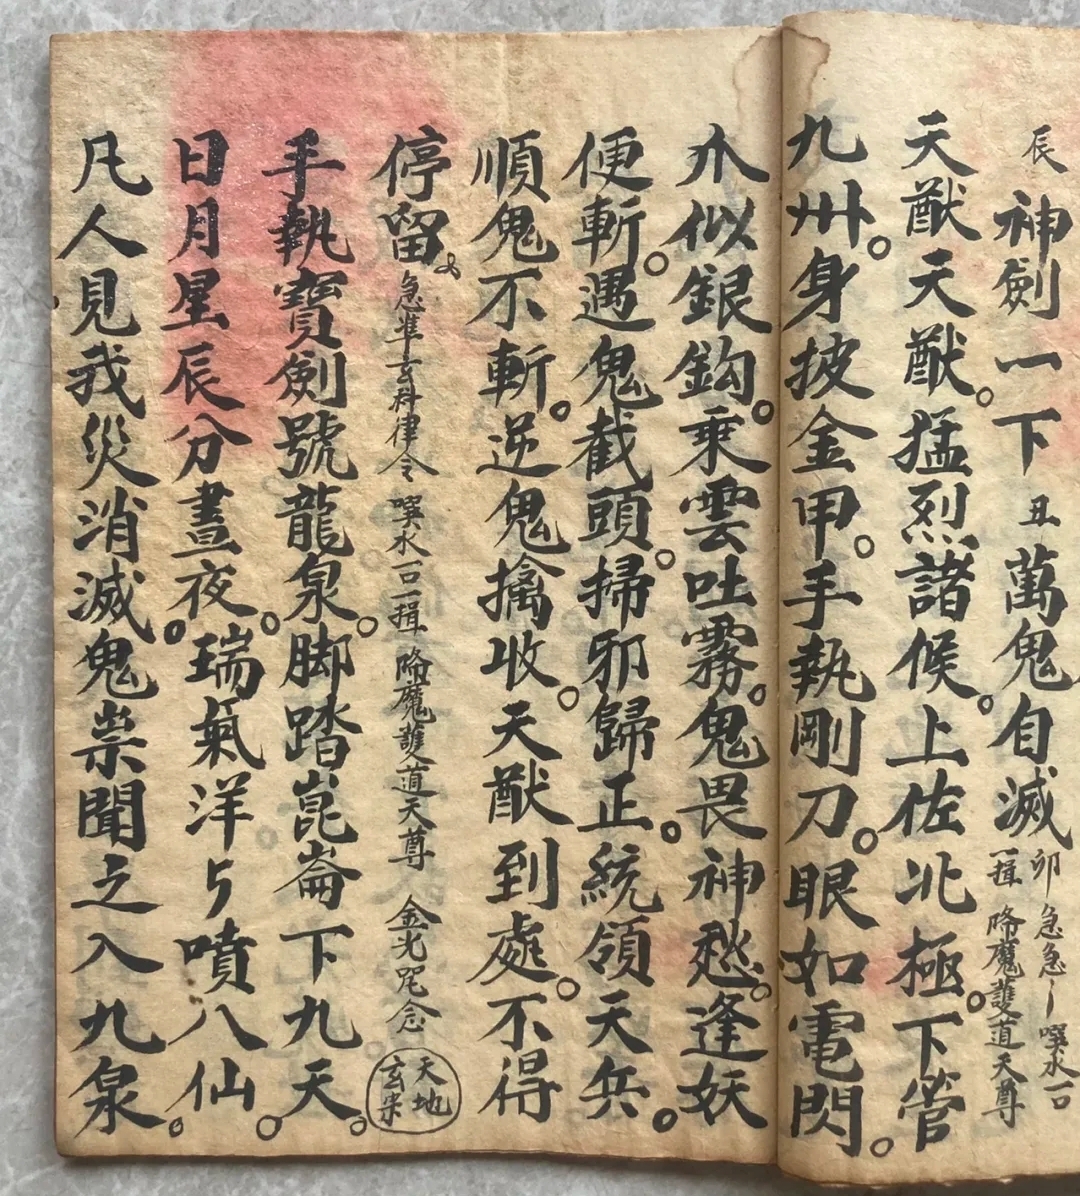 辰 神劍一下 丑 萬鬼自滅 卯 急急 噀水一口 一揖 降魔護道天尊
天猷天猷。猛烈諸候。上佐北極。下管
九州。身披金甲。手執剛刀。眼如電閃。
爪似銀鈎。乘雲吐霧。鬼畏神愁。逢妖
便斬。遇鬼截頭。掃邪歸正。統領天兵。
順鬼不斬。逆鬼擒收。天猷到處。不得
停留。急準玄科律令 噀水一口一揖 降魔護道天尊 金光咒念 天地玄宗
手執寶劍號龍泉。脚踏崑崙下九天。
日月星辰分晝夜。瑞氣洋〻噴八仙。
凡人見我災消滅。鬼祟聞之入九泉。